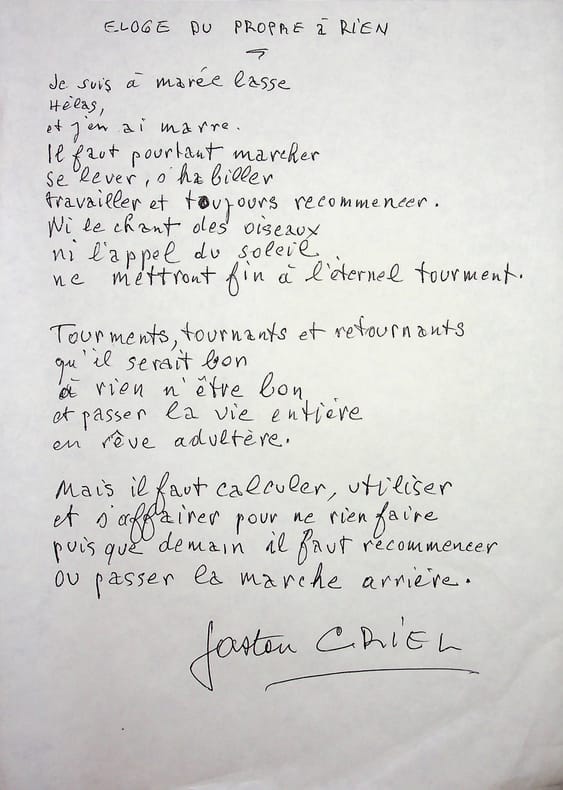 ELOGE DU PROPRE à RIEN
Je suis à marée lasse
Hélas,
et j'en ai marre.
Il faut pourtant marcher
se lever, s'habiller
travailler et toujours recommencer.
Ni le chant des oiseaux
ni l'appel du soleil
ne mettront fin à l'éternel tourment.
Tourments, tournants et retournants
qu'il serait bon
à rien n'être bon
et passer la vie entière
en rêve adultère.
Mais il faut calculer, utiliser
et s'affairer pour ne rien faire
puisque demain il faut recommencer
ou passer la marche arrière.
Gaston CRIEL